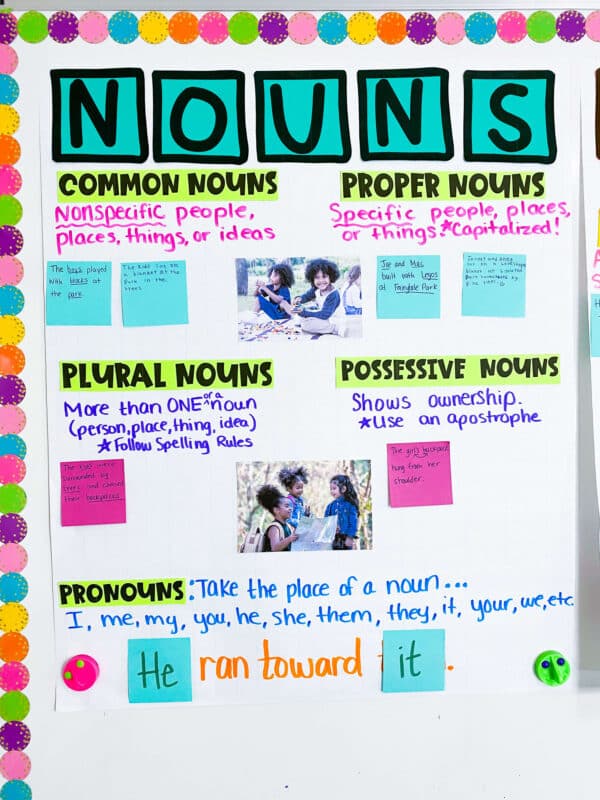 NOUNS
COMMON NOUNS
Nonspecific people,
places, things, or ideas
PROPER NOUNS
Specific people, places,
or things. *Capitalized!
The boys played
with blocks at
the park.
The kids sat on
a blanket at the
park in the
trees.
Joe and Max
built with Legos
at Fairydale Park
PLURAL NOUNS
More than ONE of a noun
(person, place, thing, idea)
*Follow Spelling Rules
POSSESSIVE NOUNS
Shows ownership.
*Use an apostrophe
The kids were
surrounded by
trees and
their backpacks.
The girl's backpack
hung from her
shoulder.
PRONOUNS: Take the place of a noun...
I, me, my, you, he, she, them, they, it, your, we, etc.
He ran toward it.